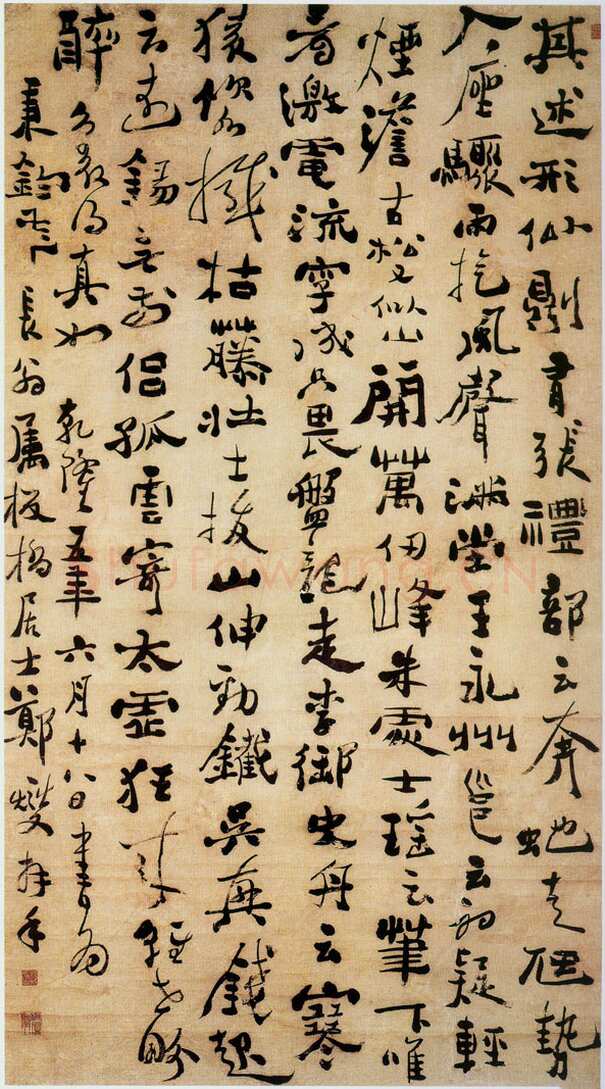 其述形似則有張澧部云奔虵走虺勢
入座驟雨旋風聲滿堂王永州邕云初疑輕
煙澹古松又似山開萬仞峰朱處士瑤云筆下唯
看激電流字成只畏盤龍走李御史舟云寒
猿飲水撼枯藤壯士拔山伸勁鐵吳興錢起
云遠錫無前侶孤雲寄太虛狂來輕世界
醉裏得真如 乾隆五年六月十八日書為
秉鈞長翁属板橋居士鄭燮拜手
shufawang.CN